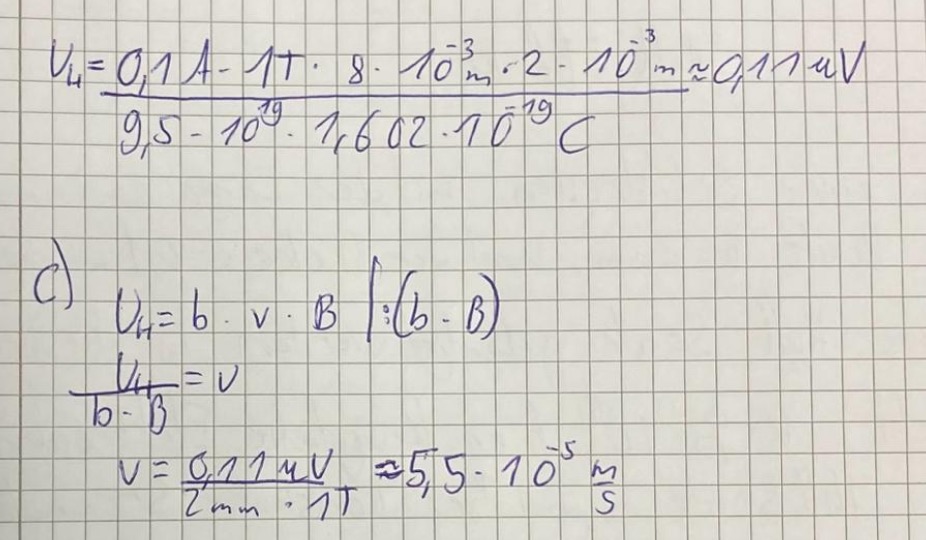 U_H = (0,1 A · 1T · 8 · 10^-3 m · 2 · 10^-3 m) / (9,5 · 10^19 · 1,602 · 10^-19 C) ≈ 0,11 uV
c)
U_H = b · v · B |:(b · B)
U_H / (b · B) = v
v = 0,11 uV / (2 mm · 1T) ≈ 5,5 · 10^-5 m/s